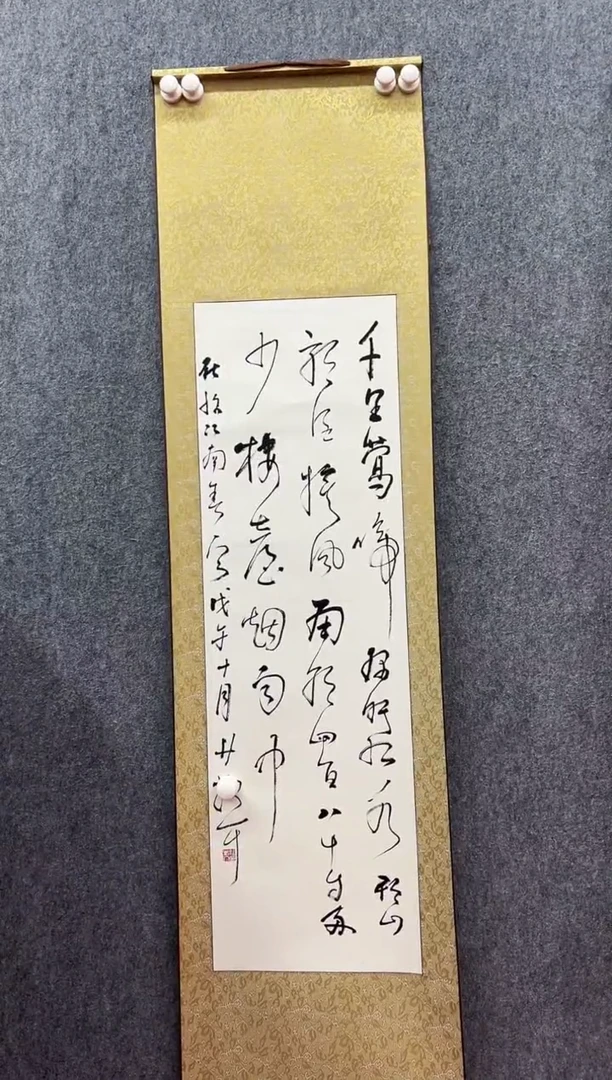 千里鶯啼綠映紅水村山
郭酒旗風南朝四百八十寺多
少樓臺烟雨中
杜牧江南春戊午十月